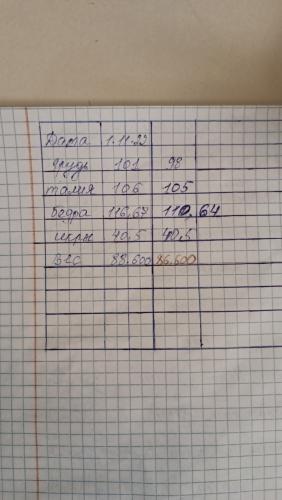 Дата 1.11.22
грудь 101 98
талия 106 105
бедра 116,67 110,64
икры 40,5 40,5
вес 88.600 86.600